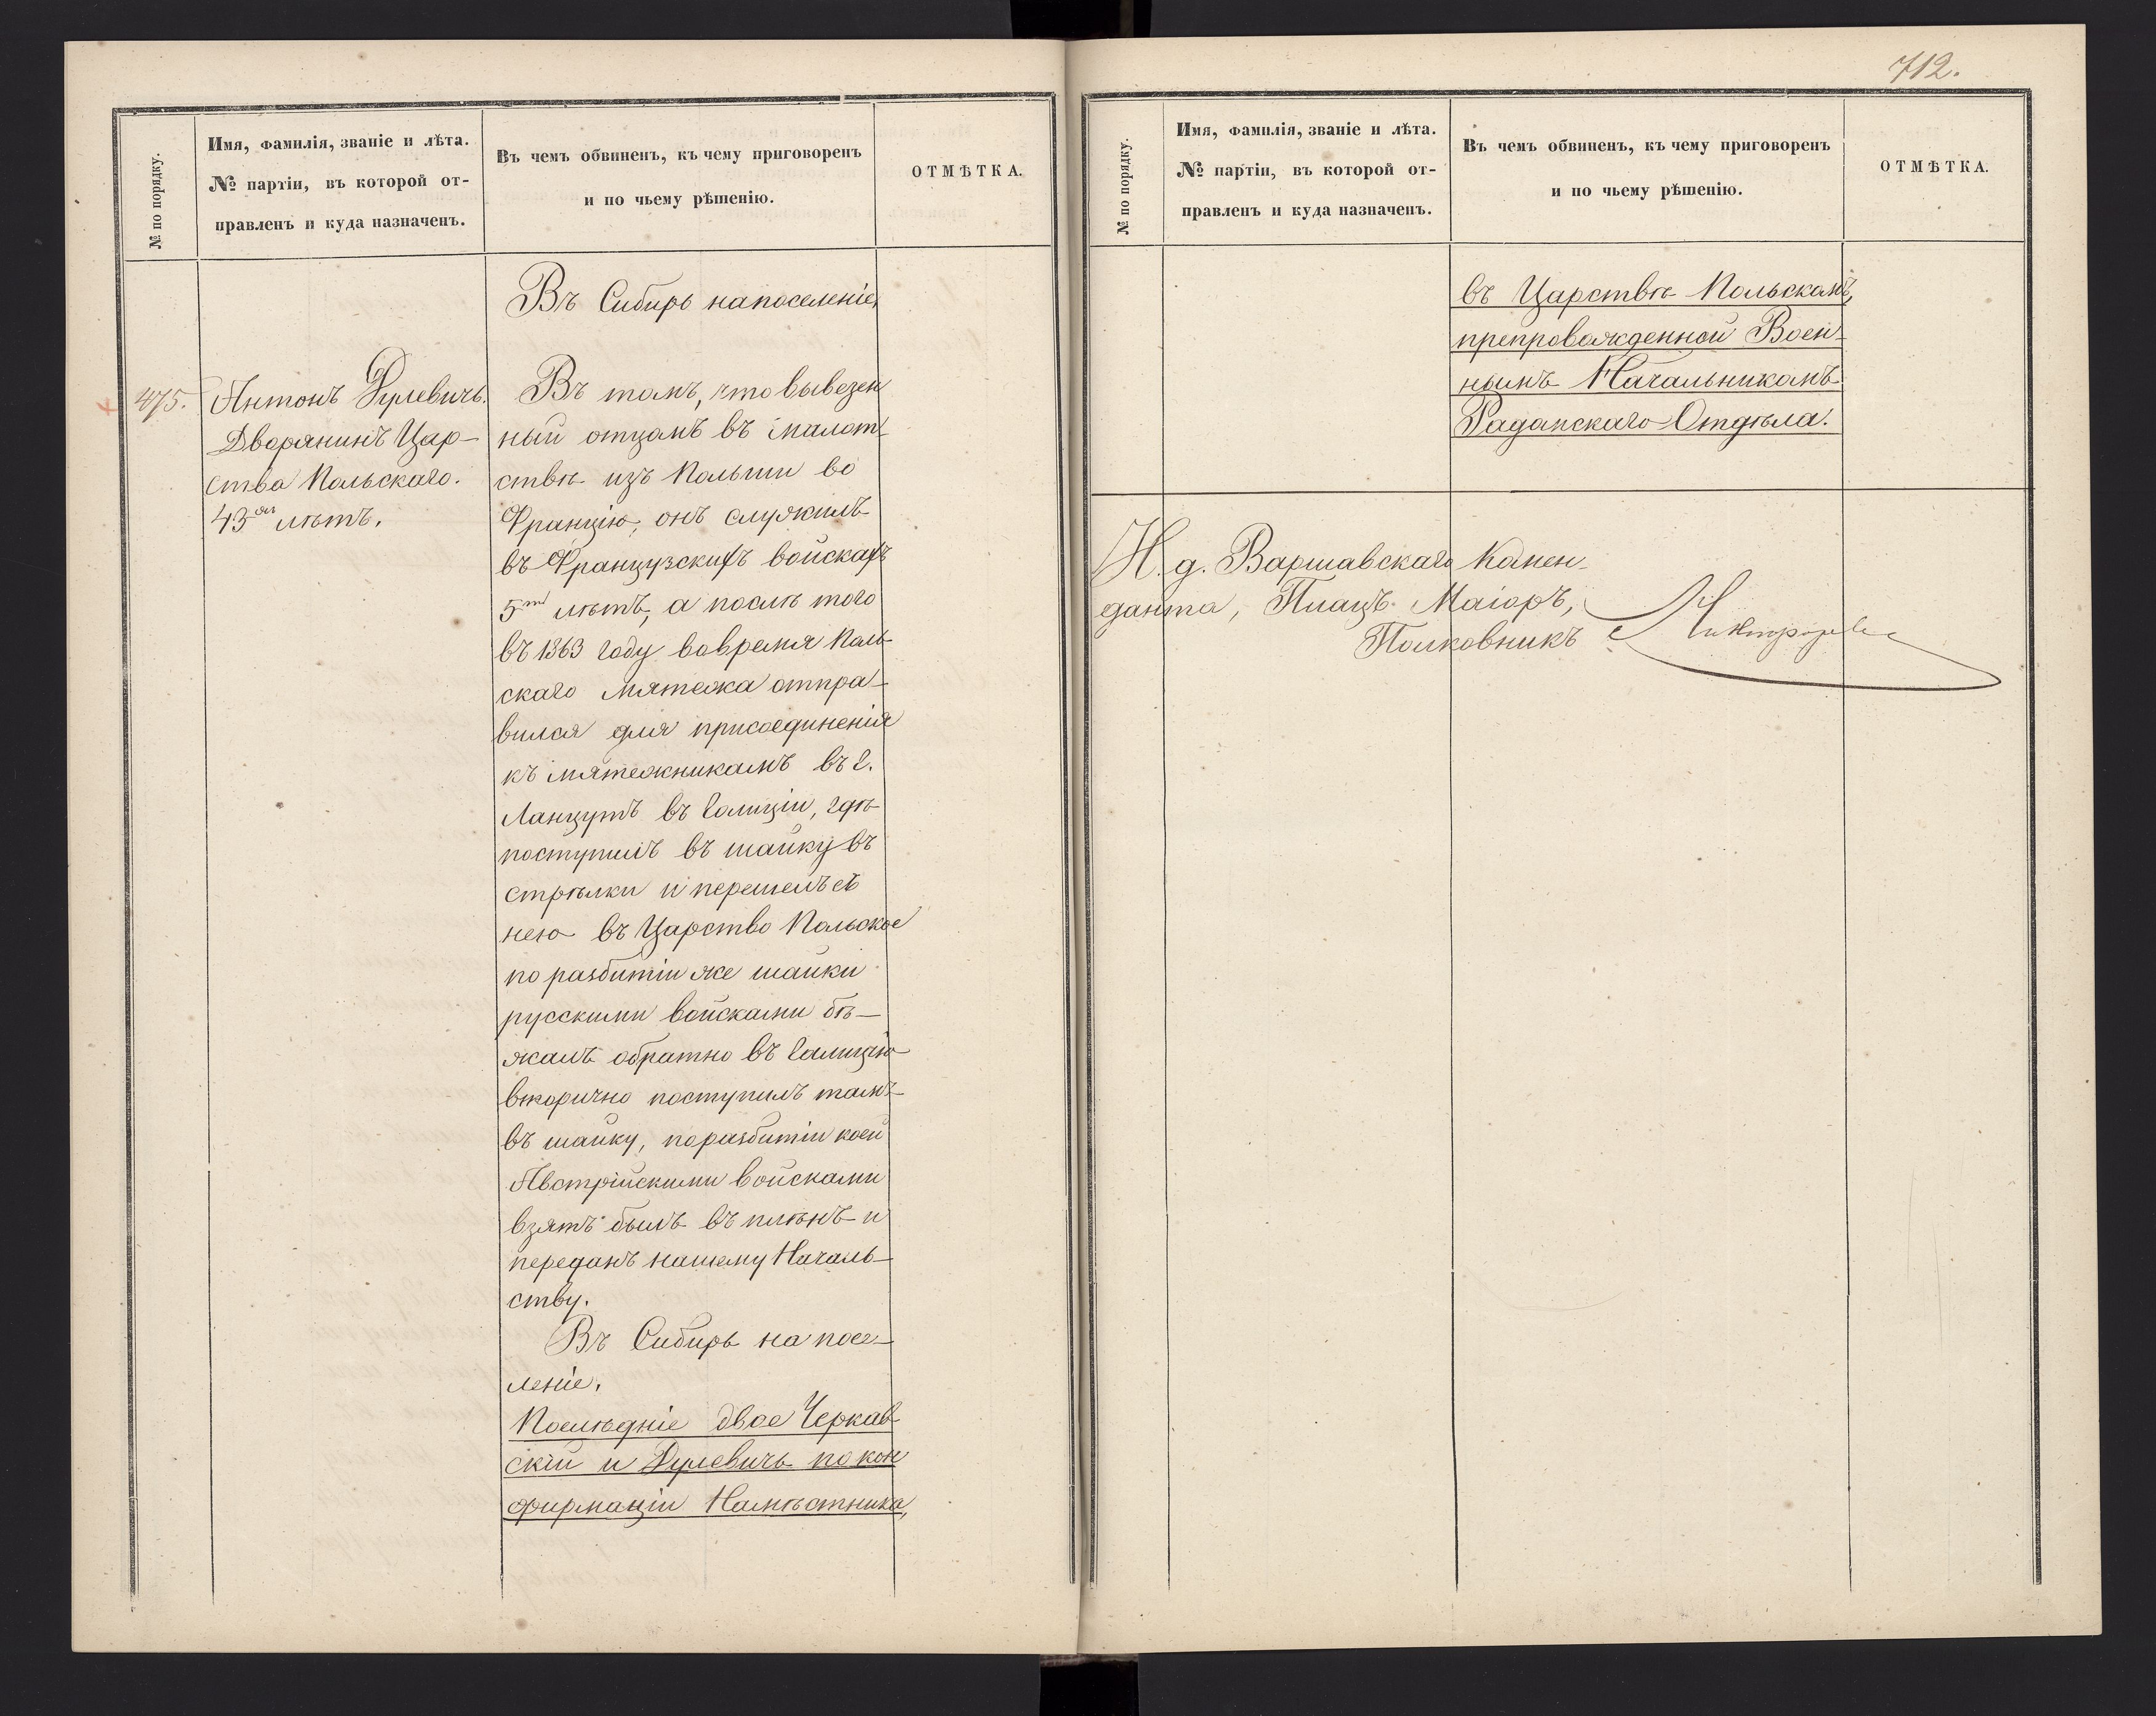 712.
№ по порядку.
Имя, фамилія, званіе и лѣта.
№ партіи, въ которой от-
правленъ и куда назначенъ.
Въ чемъ обвиненъ, къ чему приговоренъ
и по чьему рѣшенію.
ОТМѢТКА.
Въ Сибирь на поселеніе,
475.
Антонъ Дулевичъ.
Дворянинъ Цар-
ства Польскаго.
43 лѣтъ.
Въ томъ, что вывезен
ный отцомъ въ малот
ствѣ изъ Польши во
Францію, онъ служилъ
въ Французскихъ войскахъ
5ть лѣтъ, а послѣ того
въ 1863 году вовремя Поль
скаго мятежа отпра-
вился для присоединенія
къ мятежникамъ въ г.
Ланцутъ въ Галиціи, гдѣ
поступилъ въ шайку въ
стрѣлки и перешелъ съ
нею въ Царство Польское
по разбитіи же шайки
русскими войсками бѣ-
жалъ обратно въ Галицію
вторично поступилъ тамъ
въ шайку, по разбитіи коей
Австрійскими войсками
взятъ былъ въ плѣнъ и
переданъ нашему Началь-
ству.
Въ Сибирь на посе-
леніе.
Послѣдніе двое Черкав
скій и Дулевичъ по кон
фирмаціи Намѣстника,
№ по порядку.
Имя, фамилія, званіе и лѣта.
№ партіи, въ которой от-
правленъ и куда назначенъ.
Въ чемъ обвиненъ, къ чему приговоренъ
и по чьему рѣшенію.
ОТМѢТКА.
въ Царствѣ Польскомъ,
препровожденной Воен-
нымъ Начальникомъ
Радомскаго Отдѣла.
И. д. Варшавскаго Комен-
данта, Плацъ-Маіоръ,
Полковникъ